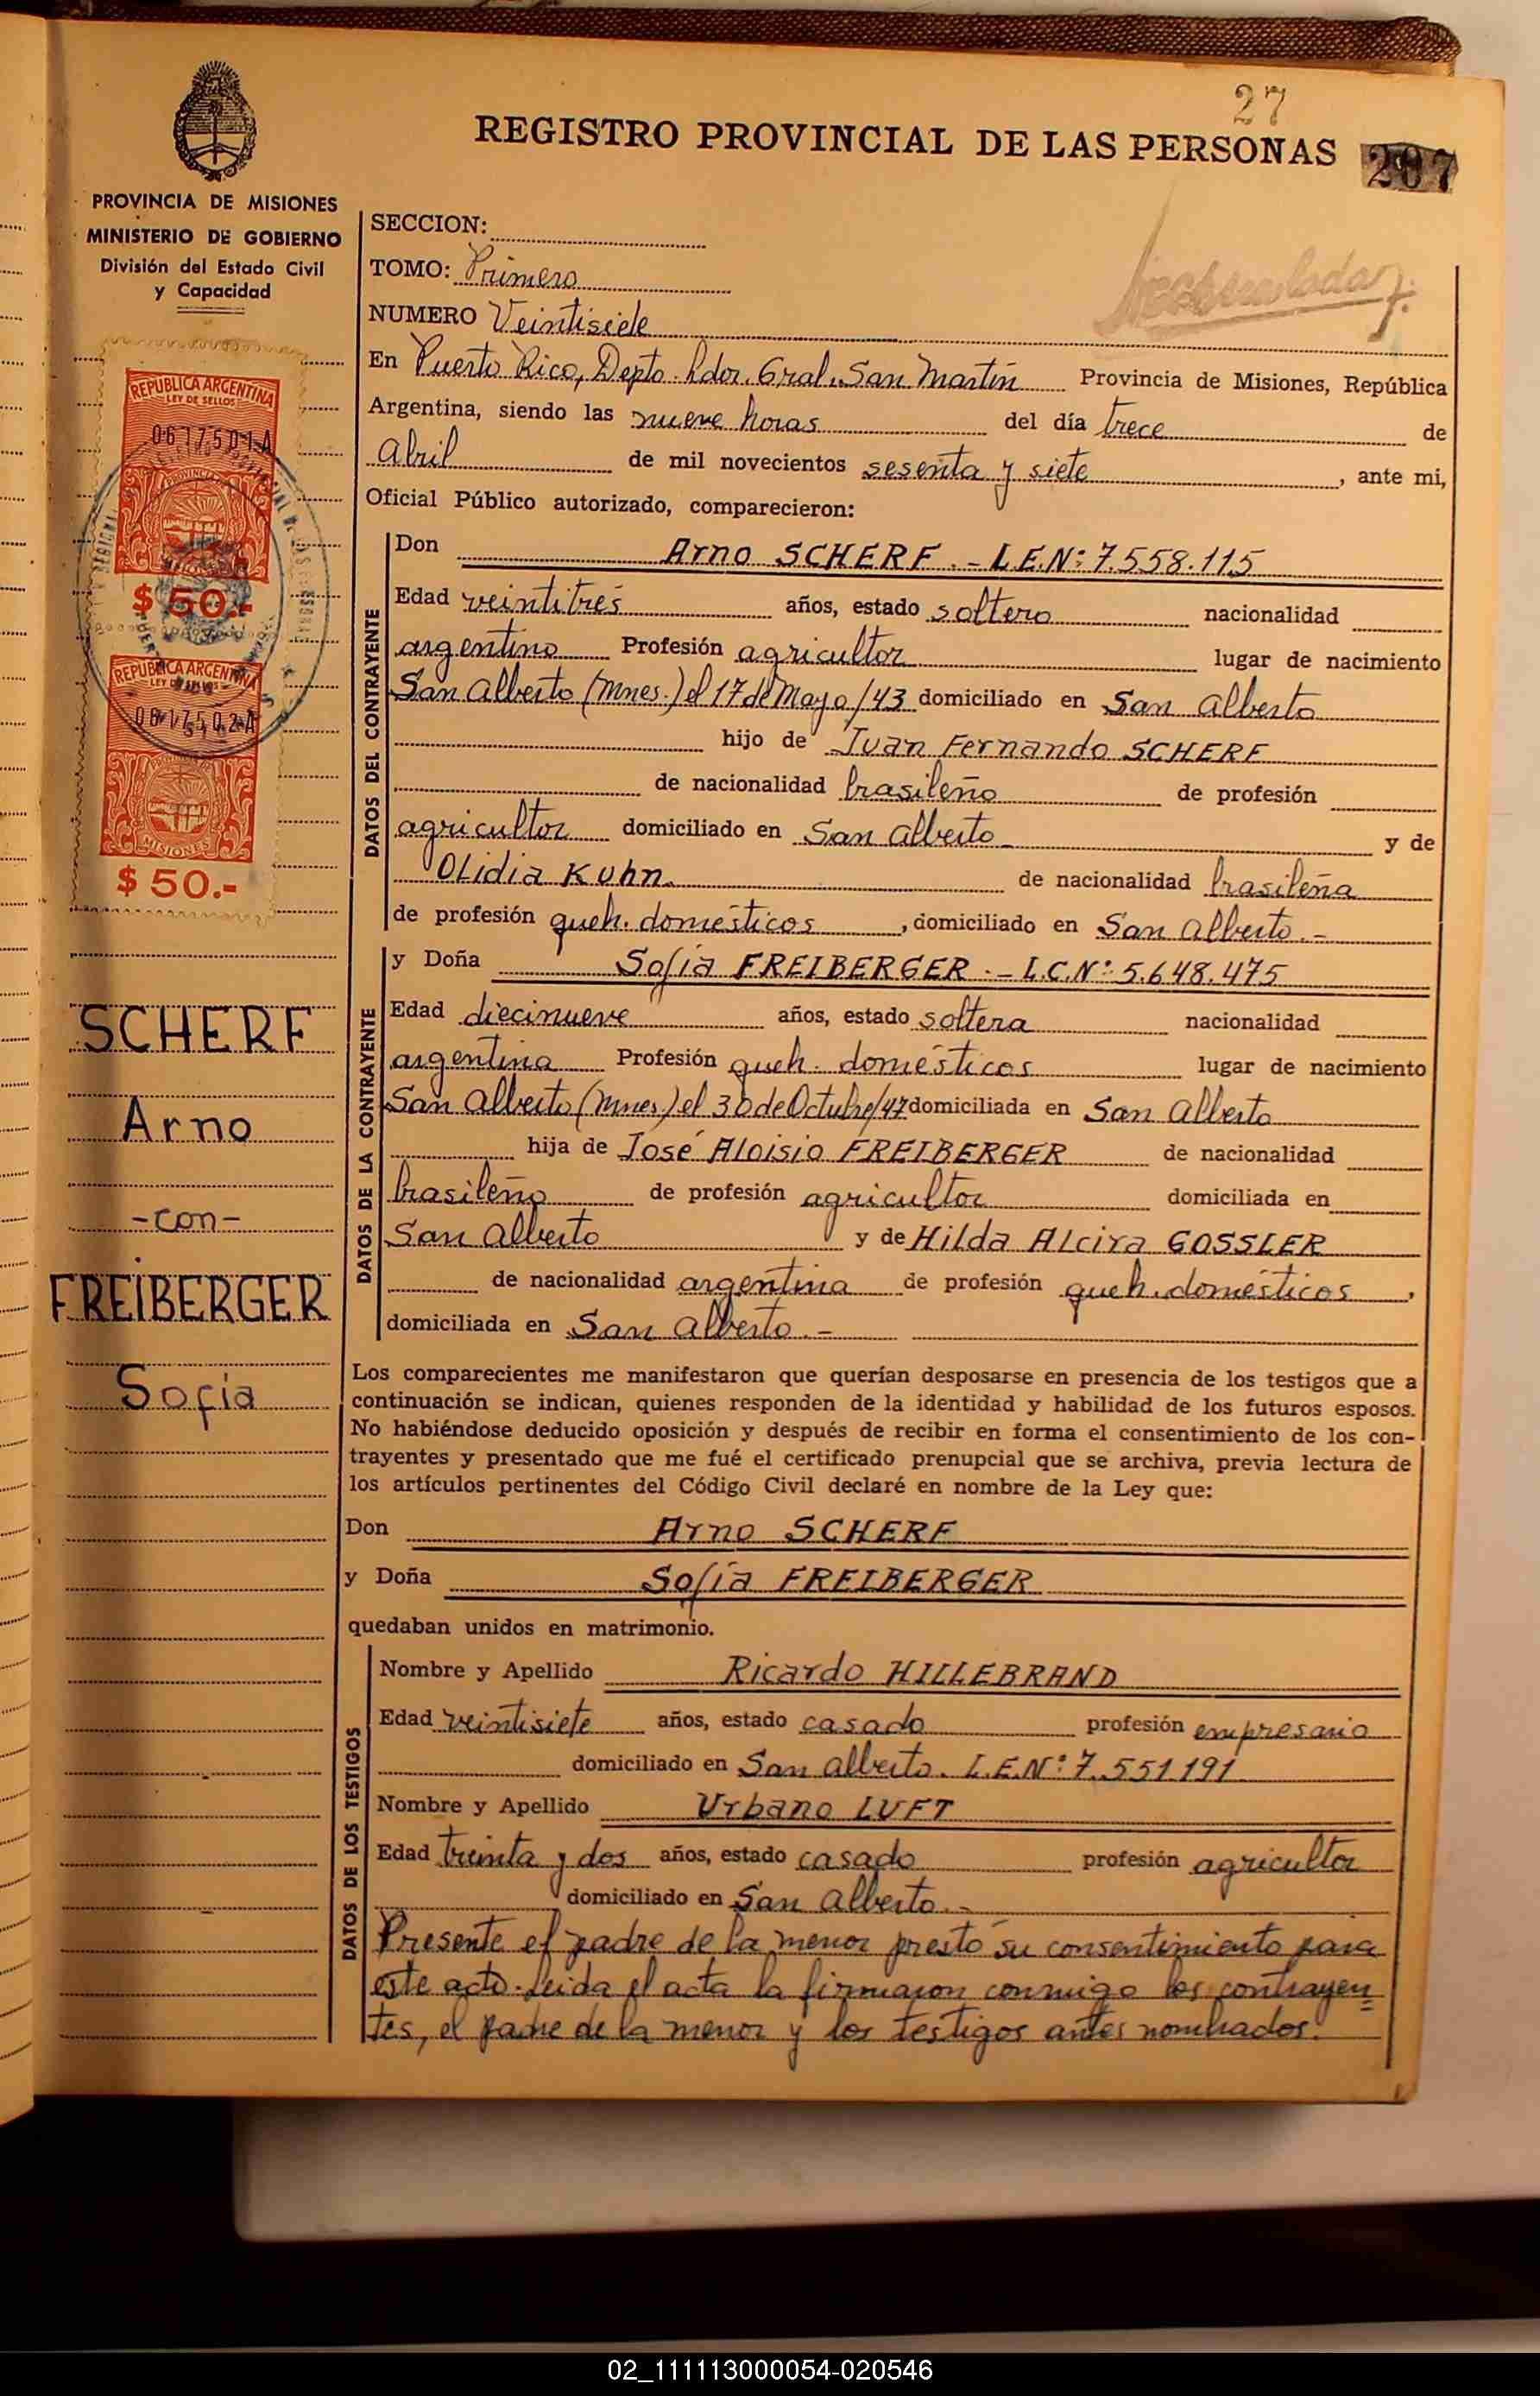 27
REGISTRO PROVINCIAL DE LAS PERSONAS
207
PROVINCIA DE MISIONES
MINISTERIO DE GOBIERNO
División del Estado Civil
y Capacidad
REPUBLICA ARGENTINA
LEY DE SELLOS
0617501A
$ 50.-
REPUBLICA ARGENTINA
LEY DE SELLOS
0617502A
MISIONES
$ 50.-
SCHERF
Arno
-con-
FREIBERGER
Sofía
SECCION:
TOMO: Primero
NUMERO Veintisiete
En Puerto Rico, Depto. Ldor. Gral. San Martín Provincia de Misiones, República
Argentina, siendo las nueve horas del día trece de
Abril de mil novecientos sesenta y siete, ante mi,
Oficial Público autorizado, comparecieron:
DATOS DEL CONTRAYENTE
Don Arno SCHERF.- L.E.Nº: 7.558.115
Edad veintitrés años, estado soltero nacionalidad
argentino Profesión agricultor lugar de nacimiento
San Alberto (Mnes.) el 17 de Mayo/43 domiciliado en San Alberto
hijo de Juan Fernando SCHERF
de nacionalidad brasileño de profesión
agricultor domiciliado en San Alberto y de
Olidia Kuhn de nacionalidad brasileña
de profesión queh. domésticos, domiciliado en San Alberto.-
DATOS DE LA CONTRAYENTE
y Doña Sofía FREIBERGER.- L.C.Nº: 5.648.475
Edad diecinueve años, estado soltera nacionalidad
argentina Profesión queh. domésticos lugar de nacimiento
San Alberto (Mnes.) el 30 de Octubre/47 domiciliada en San Alberto
hija de José Aloisio FREIBERGER de nacionalidad
brasileño de profesión agricultor domiciliada en
San Alberto y de Hilda Alcira GOSSLER
de nacionalidad argentina de profesión queh. domésticos,
domiciliada en San Alberto.-
Los comparecientes me manifestaron que querían desposarse en presencia de los testigos que a
continuación se indican, quienes responden de la identidad y habilidad de los futuros esposos.
No habiéndose deducido oposición y después de recibir en forma el consentimiento de los con-
trayentes y presentado que me fué el certificado prenupcial que se archiva, previa lectura de
los artículos pertinentes del Código Civil declaré en nombre de la Ley que:
Don Arno SCHERF
y Doña Sofía FREIBERGER
quedaban unidos en matrimonio.
DATOS DE LOS TESTIGOS
Nombre y Apellido Ricardo HILLEBRAND
Edad veintisiete años, estado casado profesión empresario
domiciliado en San Alberto. L.E.Nº: 7.551.191
Nombre y Apellido Urbano LUFT
Edad treinta y dos años, estado casado profesión agricultor
domiciliado en San Alberto.-
Presente el padre de la menor prestó su consentimiento para
este acto. Leida el acta la firmaron conmigo los contrayen=
tes, el padre de la menor y los testigos antes nombrados.
02_111113000054-020546